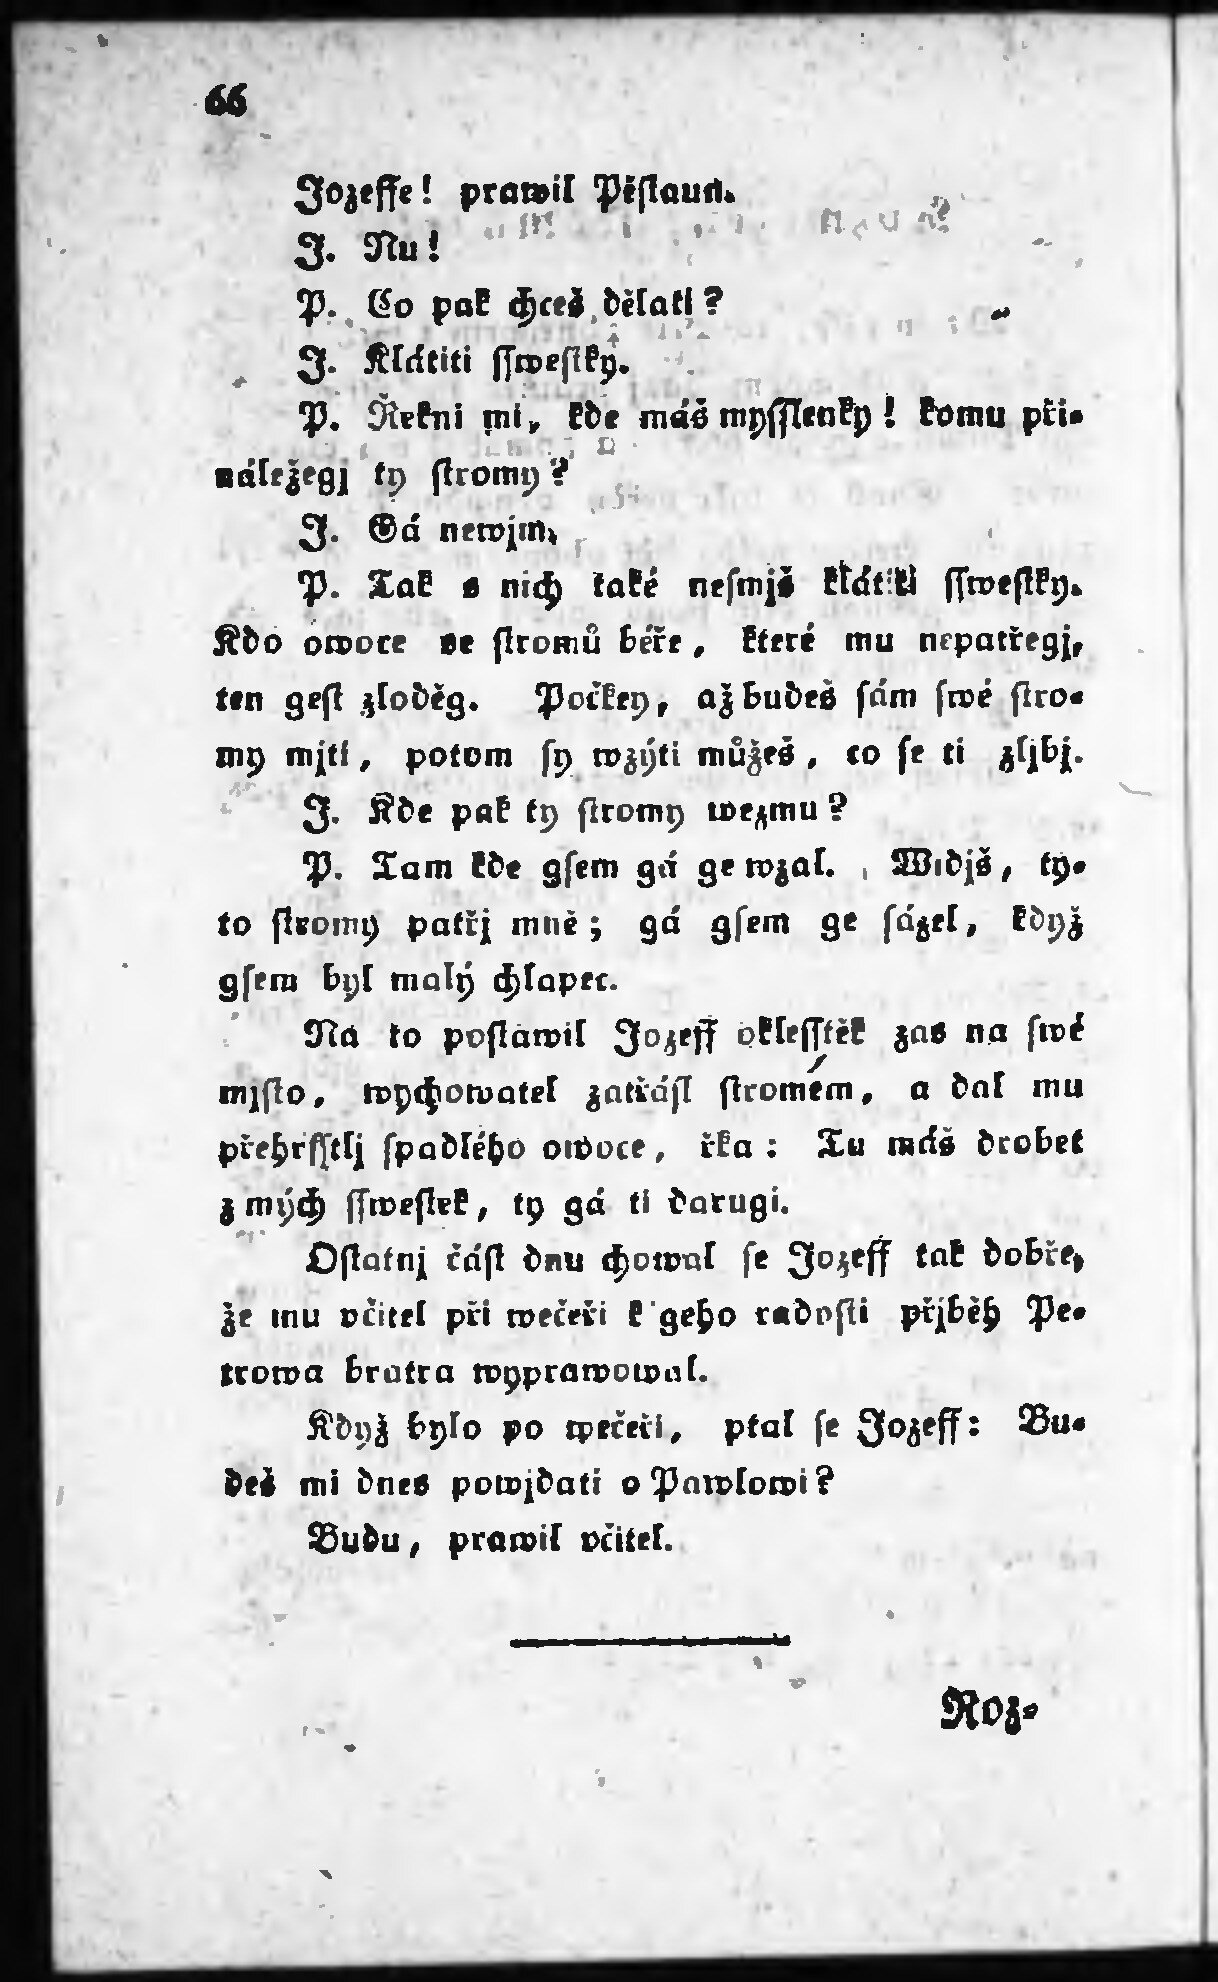 66
Jozeffe! prawil Pěstaun.
J. Nu!
P. Co pak chceš dělati?
J. Klátiti sswestky.
P. Řekni mi, kde máš mysslenky! komu při-
náležegj ty stromy?
J. Gá newjm.
P. Tak s nich také nesmjš klátiti sswestky.
Kdo owoce se stromů béře, které mu nepatřegj,
ten gest zloděg. Počkey, až budeš sám swé stro-
my mjti, potom sy wzýti můžeš, co se ti zljbj.
J. Kde pak ty stromy wezmu?
P. Tam kde gsem gá ge wzal. Widjš, ty-
to stromy patřj mně; gá gsem ge sázel, když
gsem byl malý chlapec.
Na to postawil Jozeff oklesstěk zas na swé
mjsto, wychowatel zatřásl stromém, a dal mu
přehrsstlj spadlého owoce, řka: Tu máš drobet
z mých sswestek, ty gá ti darugi.
Ostatnj část dnu chowal se Jozeff tak dobře,
že mu včitel při wečeři k geho radosti přjběh Pe-
trowa bratra wyprawowal.
Když bylo po wečeři, ptal se Jozeff: Bu-
deš mi dnes powjdati o Pawlowi?
Budu, prawil včitel.
Roz-